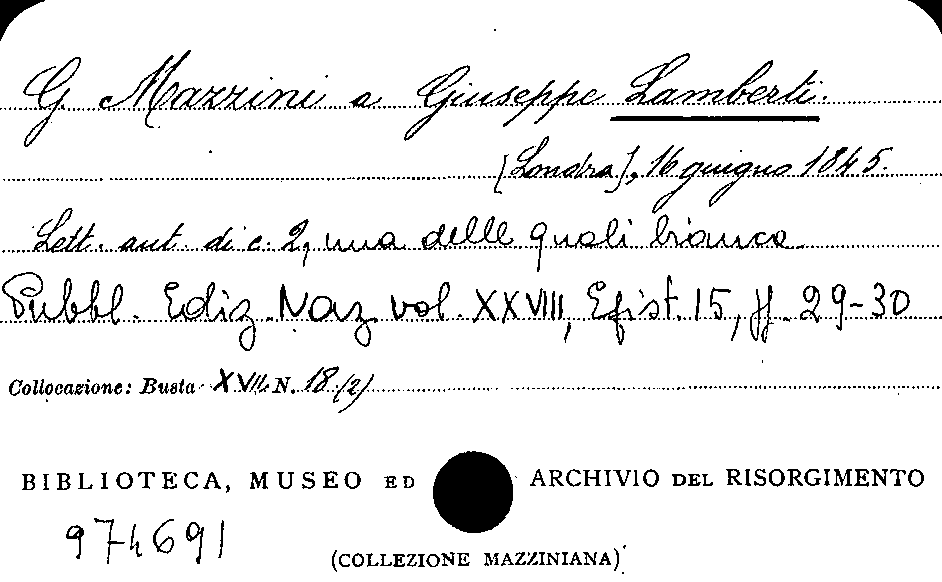 G. Mazzini a Giuseppe Lamberti.
[Londra], 16 giugno 1845.
Lett. aut. di c. 2, una delle quali bianca
Pubbl. Ediz. Naz. vol. XXVIII, Epist. 15, pp. 29-30
Collocazione: Busta XVII N. 18 (2)
BIBLIOTECA, MUSEO ED ARCHIVIO DEL RISORGIMENTO
974691
(COLLEZIONE MAZZINIANA)